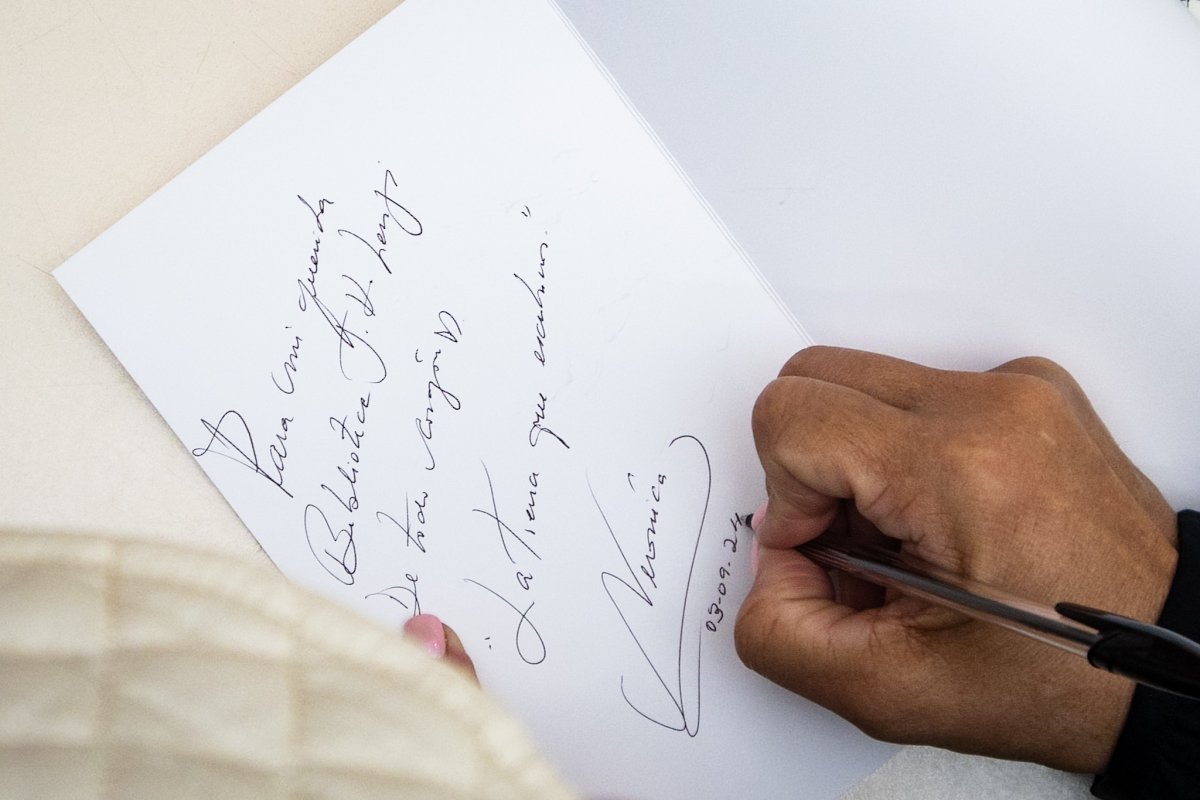 Para mi querida
Biblioteca A. H.
De todo corazón
"La Tierra que
Verónica
03-09-24